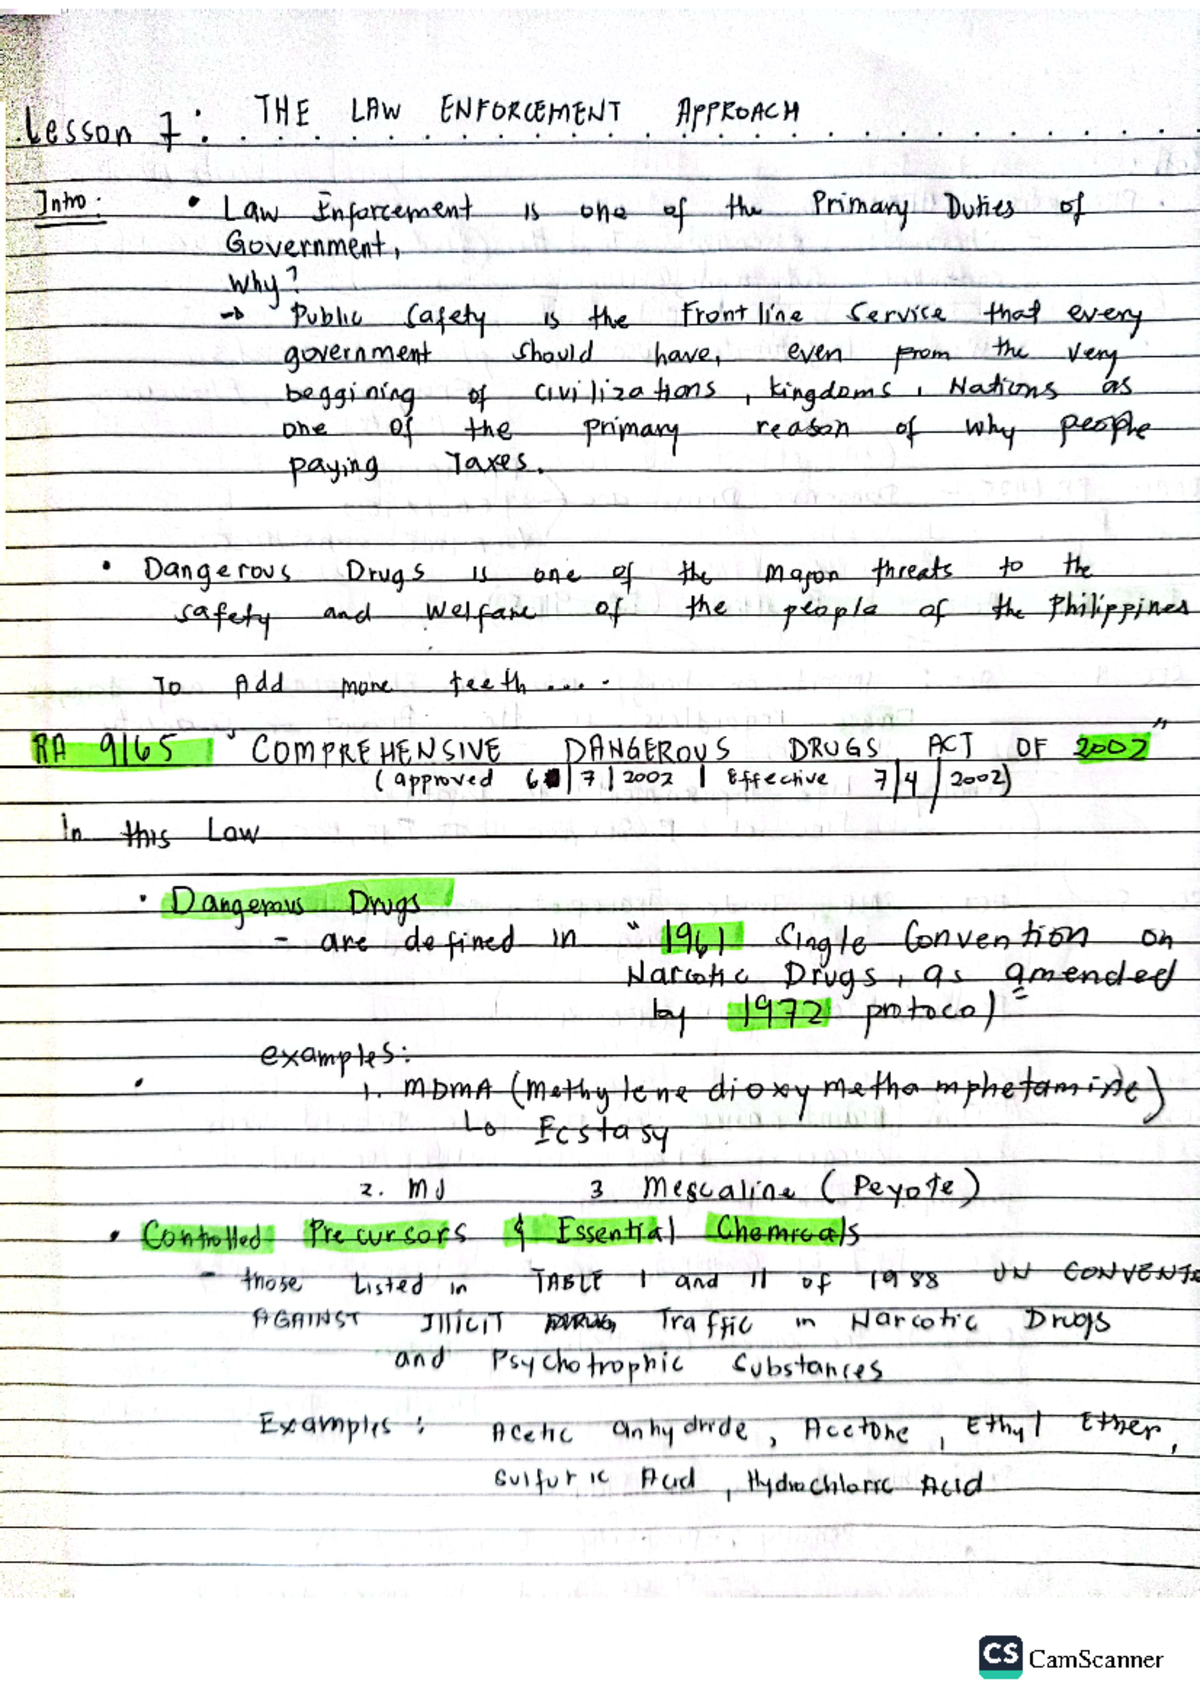 Lesson 7: THE LAW ENFORCEMENT APPROACH
Intro: • Law Enforcement is one of the Primary Duties of
Government,
Why?
→ Public Safety is the Frontline Service that every
government should have, even from the very
beggining of civilizations, kingdoms, Nations as
one of the primary reason of why people
paying Taxes.
• Dangerous Drugs is one of the major threats to the
safety and Welfare of the people of the Philippines
To Add more teeth....
RA 9165 "COMPREHENSIVE DANGEROUS DRUGS ACT OF 2002"
(approved 6/7/2002 | Effective 7/4/2002)
In this Law
• Dangerous Drugs
- are defined in "1961 Single Convention on
Narcotic Drugs, as amended
by 1972 protocol"
examples:
1. MDMA (Methylenedioxymethamphetamine)
↳ Ecstasy
2. MJ 3 Mescaline (Peyote)
• Controlled Precursors & Essential Chemicals
- those Listed in TABLE I and II of 1988 UN CONVENTI
AGAINST Illicit Traffic in Narcotic Drugs
and Psychotrophic Substances
Examples: Acetic anhydride, Acetone, Ethyl Ether,
Sulfuric Acid, Hydrochloric Acid
CS CamScanner